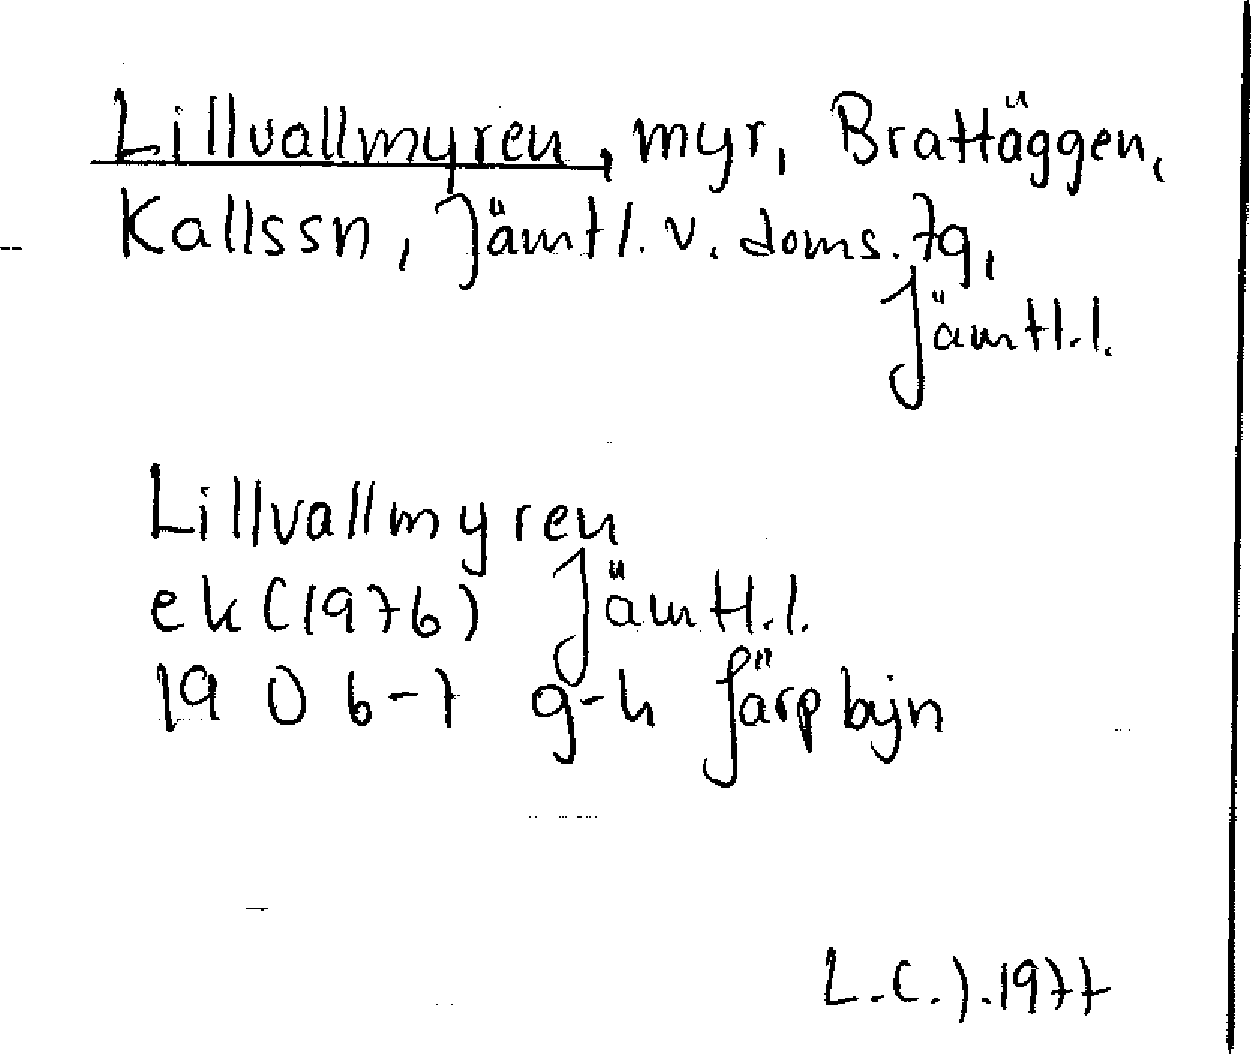 Lillvallmyren, myr, Brattäggen,
Kallssn, Jämtl. v. doms. tg,
Jämtl.l.
Lillvallmyren
ek (1976) Jämtl.l.
19 D 6-7 g-h Järpbyn
L.C.J. 1977